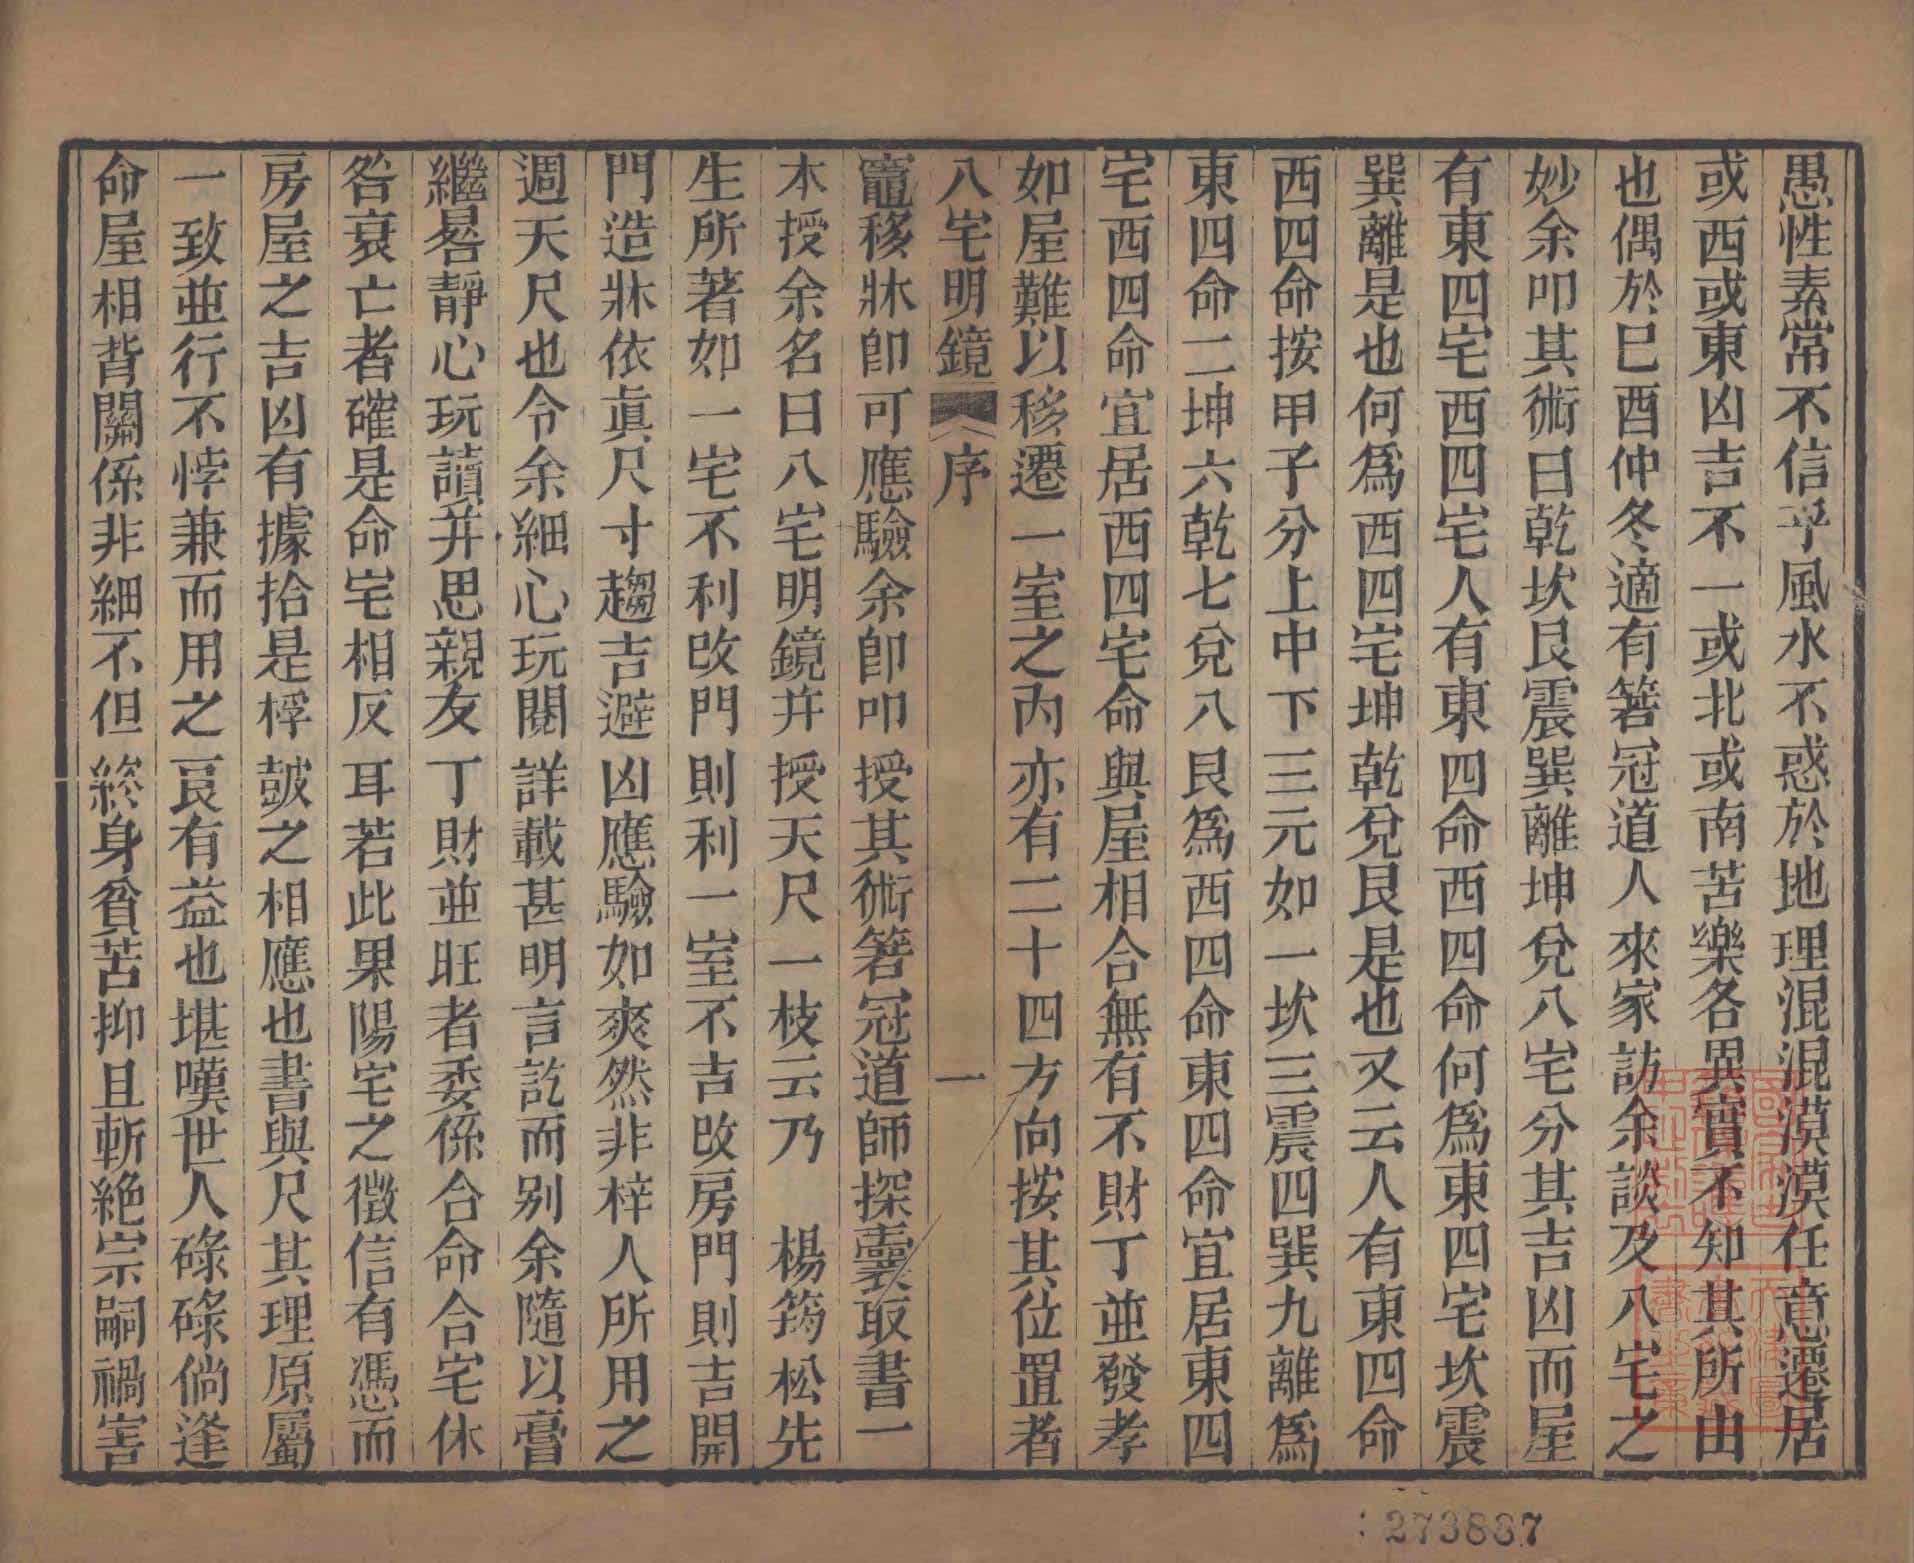 愚性素常不信乎風水不惑於地理混混漠漠任意遷居
或西或東凶吉不一或北或南苦樂各異實不知其所由
也偶於巳酉仲冬適有箬冠道人來家訪余談及八宅之
妙余叩其術曰乾坎艮震巽離坤兌八宅分其吉凶而屋
有東四宅西四宅人有東四命西四命何爲東四宅坎震
巽離是也何爲西四宅坤乾兌艮是也又云人有東四命
西四命按甲子分上中下三元如一坎三震四巽九離爲
東四命二坤六乾七兌八艮爲西四命東四命宜居東四
宅西四命宜居西四宅命與屋相合無有不財丁並發孝
如屋難以移遷一室之內亦有二十四方向按其位置者
八宅明鏡 序 一
竈移牀卽可應驗余卽叩授其術箬冠道師探囊取書一
本授余名曰八宅明鏡并授天尺一枝云乃 楊筠松先
生所著如一宅不利改門則利一室不吉改房門則吉開
門造牀依眞尺寸趨吉避凶應驗如爽然非梓人所用之
週天尺也令余細心玩閱詳載甚明言訖而别余隨以膏
繼晷靜心玩讀并思親友丁財並旺者委係合命合宅休
咎衰亡者確是命宅相反耳若此果陽宅之徵信有憑而
房屋之吉凶有據拾是桴鼓之相應也書與尺其理原屬
一致並行不悖兼而用之良有益也堪嘆世人碌碌倘逢
命屋相背關係非細不但終身貧苦抑且斬絶宗嗣禍害
273887